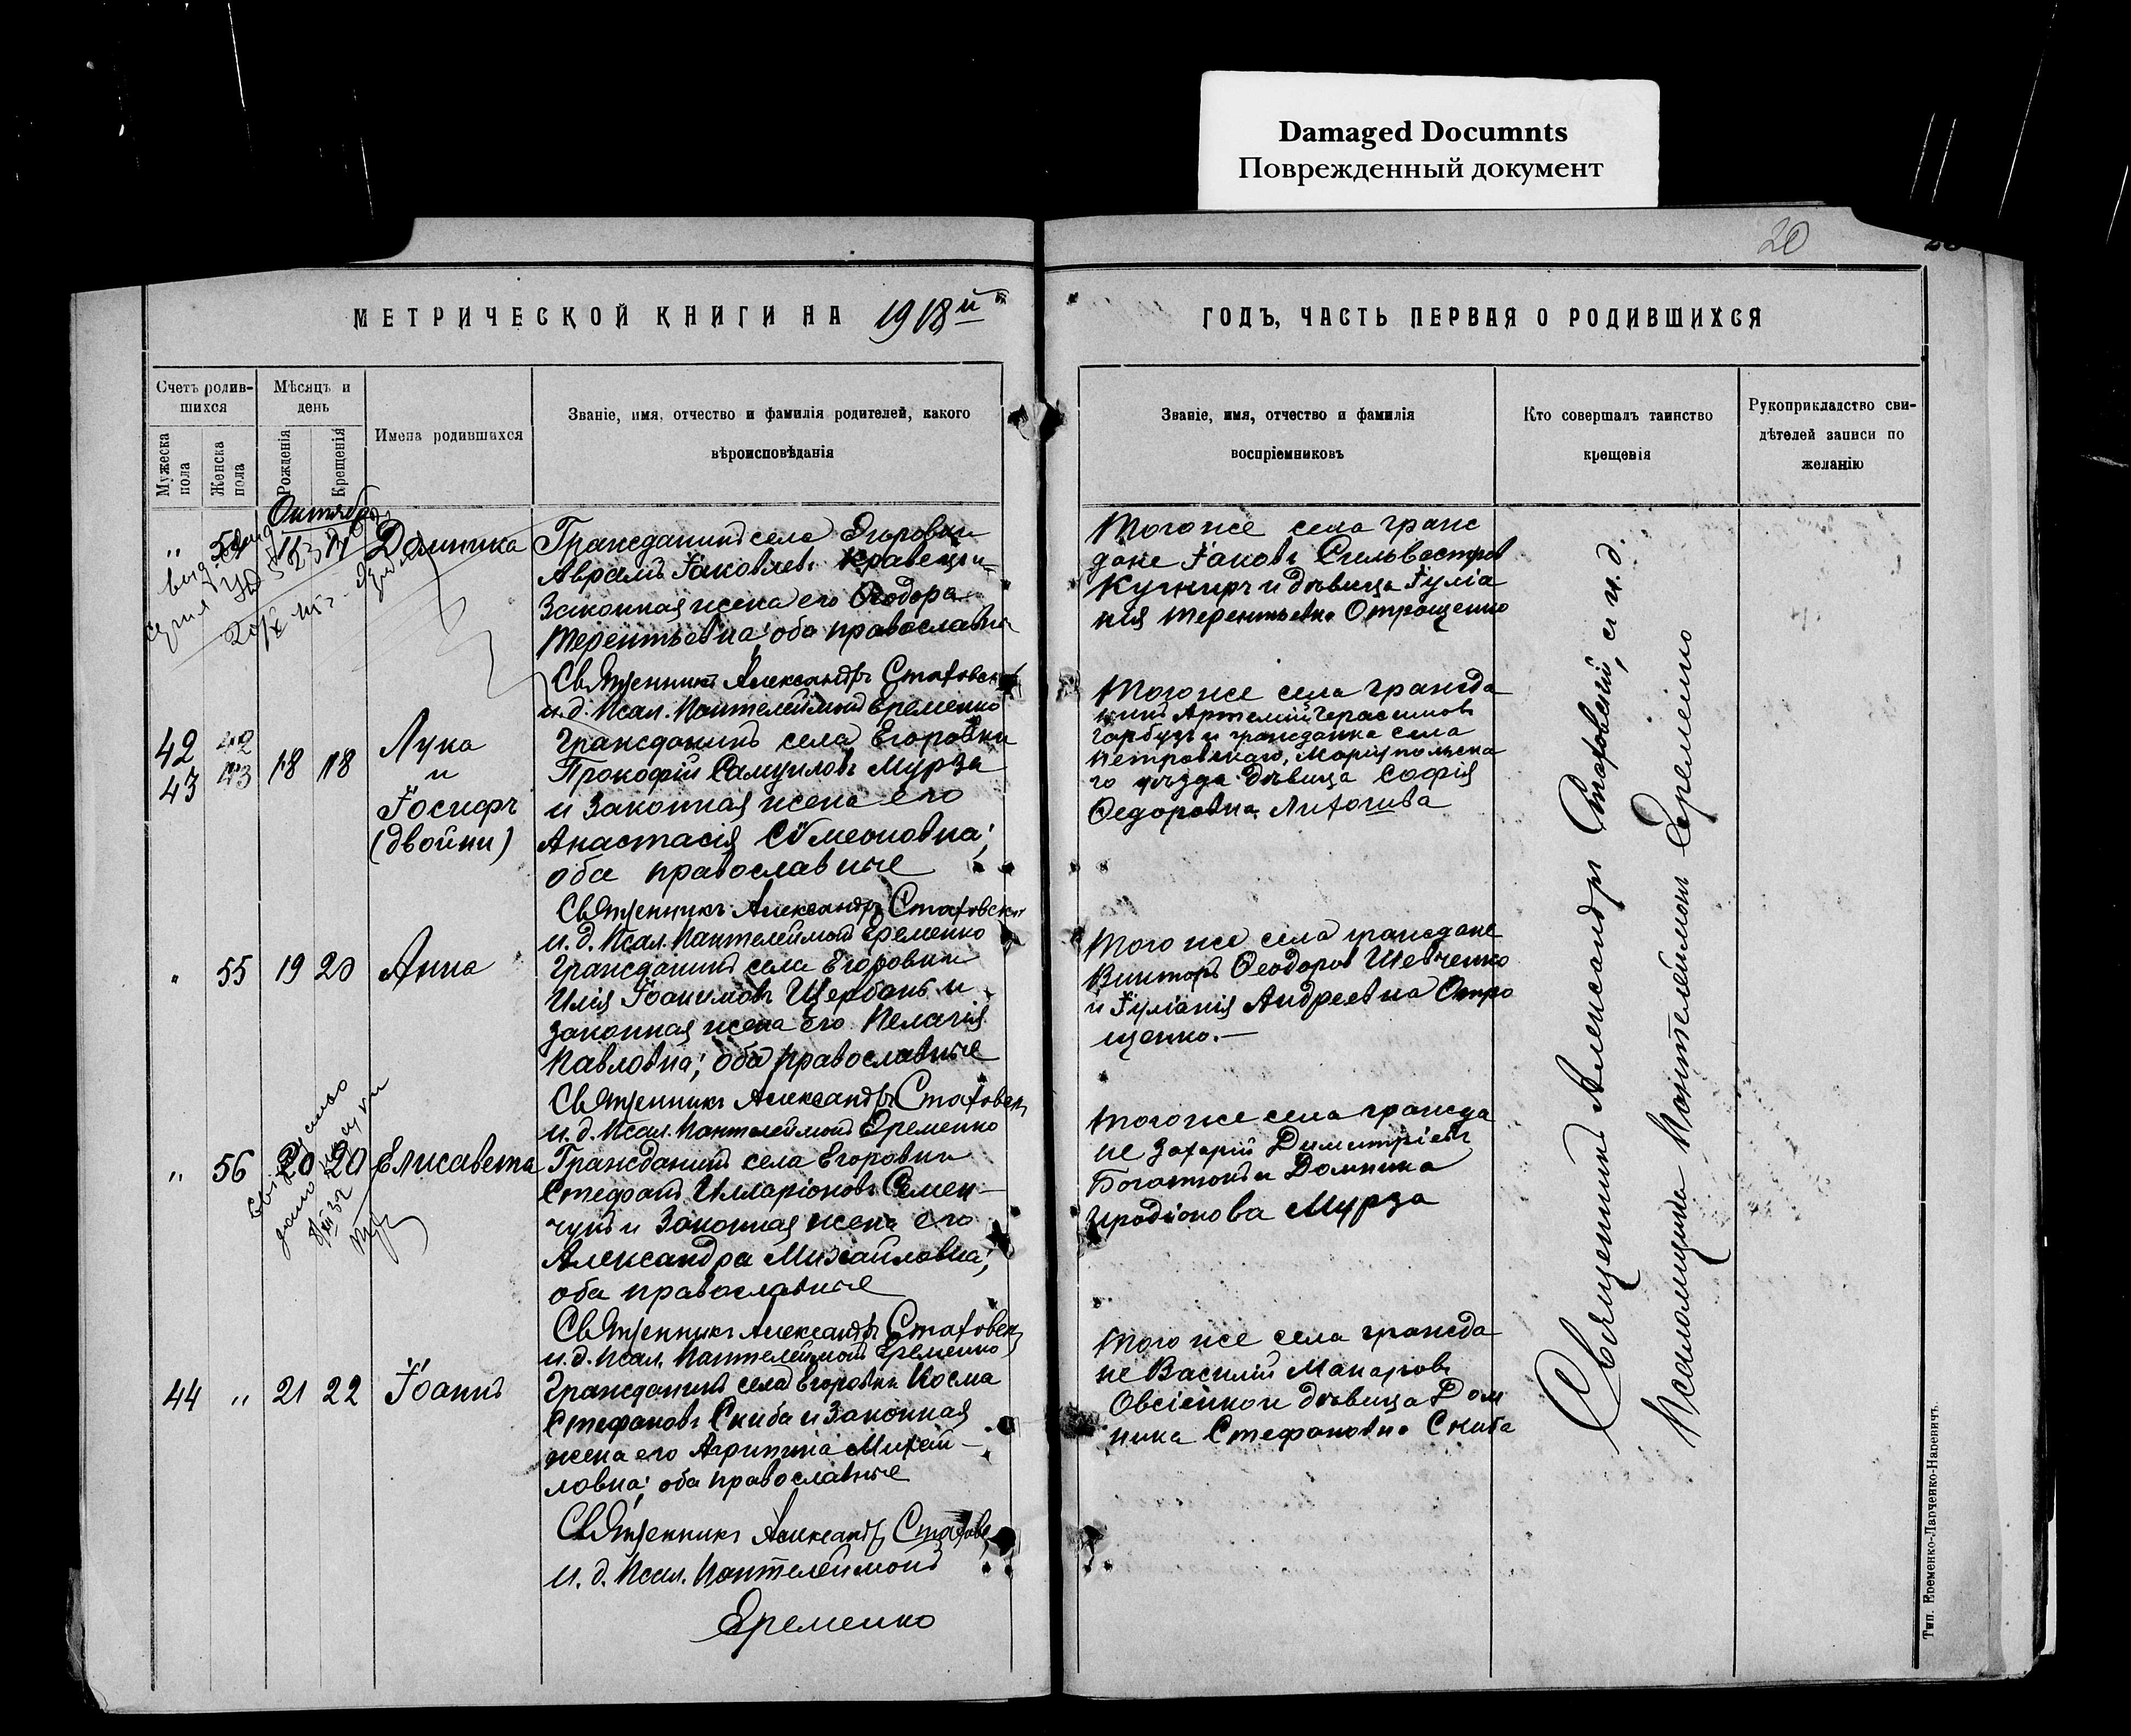 Damaged Documnts
Поврежденный документ
20
МЕТРИЧЕСКОЙ КНИГИ НА 1918й
ГОДЪ, ЧАСТЬ ПЕРВАЯ О РОДИВШИХСЯ
Счетъ родив-
шихся
Мужеска
пола
Женска
пола
Мѣсяцъ и
день
Рожденія
Крещенія
Имена родившихся
Званіе, имя, отчество и фамилія родителей, какого
вѣроисповѣданія
Званіе, имя, отчество и фамилія
воспріемниковъ
Кто совершалъ таинство
крещенія
Рукоприкладство сви-
дѣтелей записи по
желанію
Октябрь
" 54
Домника
Гражданинъ села Егоровки
Аврамъ Іаковлевъ Кравецъ и
Законная жена его Ѳеодора
Терентьевна; оба православны
Священникъ Александръ Стаховск
и. д. Псал. Пантелеймонъ Еременко
Того же села граж
дане Іаковъ Сильвестров
Кушниръ и дѣвица Іуліа
нія Терентьевна Отрощенко
42 42
43 43
18 18
Лука
и
Іосифъ
(двойни)
Гражданинъ села Егоровки
Прокофій Самуиловъ Мурза
и Законная жена его
Анастасія Сѵмеоновна;
оба православные
Священникъ Александръ Стаховск
и. д. Псал. Пантелеймонъ Еременко
Того же села гражда
нинъ Артемій Герасимовъ
Гарбузъ и гражданка села
Петровскаго, Маріупольска
го уѣзда дѣвица Софія
Ѳедоровна
" 55 19 20 Анна
Гражданинъ села Егоровки
Илія Іоакимовъ Щербань и
законная жена его Пелагія
Павловна; оба православные
Священникъ Александръ Стаховск
и. д. Псал. Пантелеймонъ Еременко
Того же села граждане
Викторъ Ѳеодоровъ Шевченко
и Іуліанія Андреевна Отро
щенко.—
" 56 20 20 Елисавета
Гражданинъ села Егоровки
Стефанъ Илларіоновъ Семен-
чукъ и Законная жена его
Александра Михайловна;
оба православные
Священникъ Александръ Стаховск
и. д. Псал. Пантелеймонъ Еременко
Того же села гражда
не Захарій Димитріевъ
Богатюкъ и Домника
Иродіонова Мурза
44 " 21 22 Іоаннъ
Гражданинъ села Егоровки Косма
Стефановъ Скиба и Законная
жена его Агрипина Михай-
ловна; оба православные
Священникъ Александръ Стахов
и. д. Псал. Пантелеймонъ
Еременко
Того же села гражда
не Василій Макаровъ
Овсіенко и дѣвица Дом
ника Стефановна Скиба
Священникъ Александръ Стаховскій, и. д.
Псаломщика Пантелеймонъ Еременко
Тип. Еременко-Ларченко-Наревичъ.